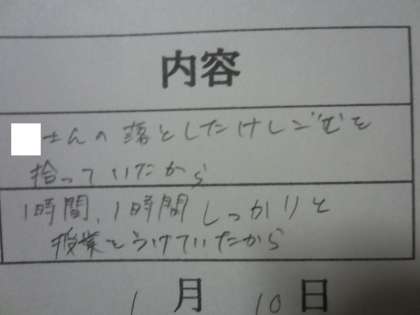 内容
さんの落としたけしごむを
拾っていたから
1時間、1時間しっかりと
授業をうけていたから
1月10日